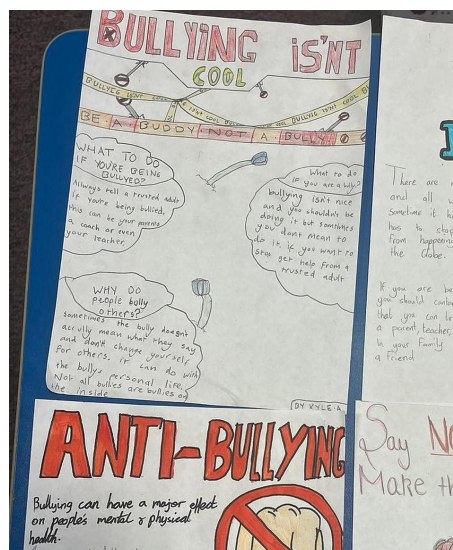 BULLYiNG iS'NT
COOL
BULLYIG ISN'T COOL
ISNT COOL BULLYING IS'NT COOL
BE A BUDDY NOT A BULLY
WHAT TO DO
IF YOU'RE BEING
BULLYED?
Always tell a trusted adult
if you're being bullied,
this can be your parents
a coach or even
your teacher.
What to do
if you are a bully?
bullying isn't nice
and you shouldn't be
doing it but somtimes
you don't mean to
do it. if you want to
stop get help from a
trusted adult
WHY DO
people bully
others?
sometimes the bully doesn't
accully mean what they say
and don't change yourself
for others. it can do with
the bullys personal life.
Not all bullies are bullies on
the inside
BY KYLE.A
There are
and all
sometime it
has to stop
from happening
the globe.
If you are be
you should
that you can te
a parent, teacher,
in your family
a friend
ANTI-BULLYING
Bullying can have a major effect
on people's mental & physical
health.
Say NO
Make th